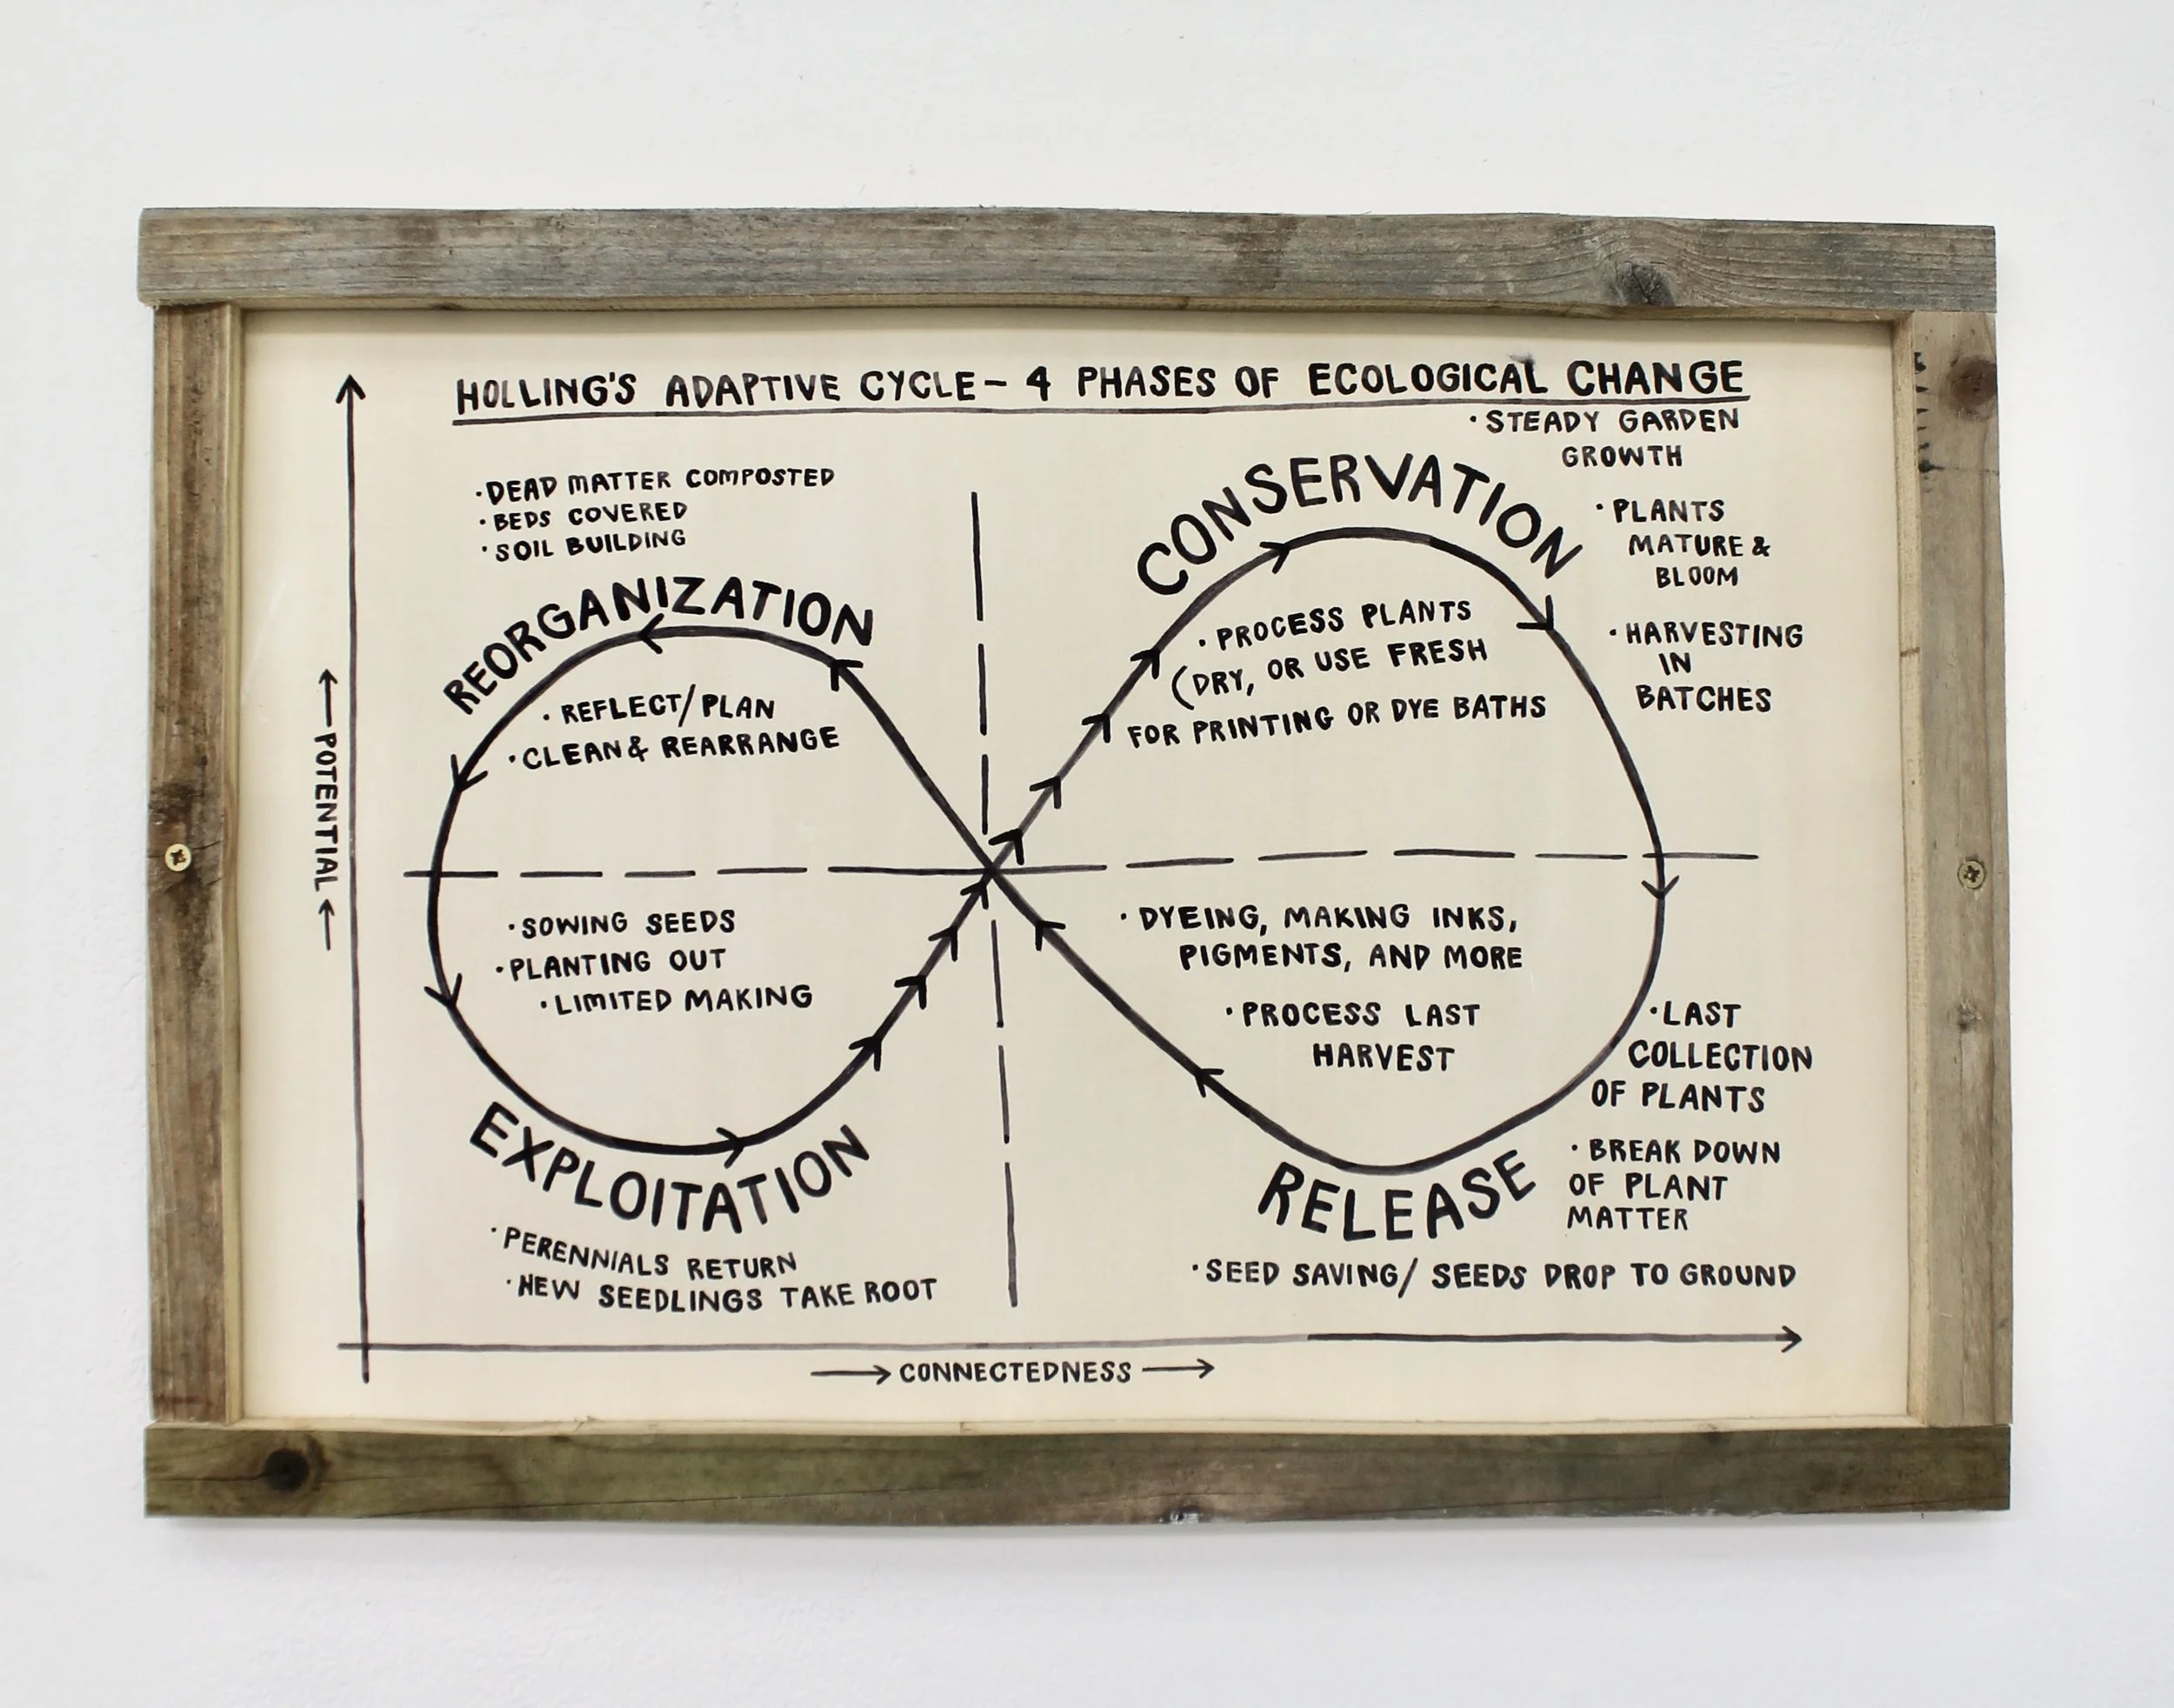 HOLLING'S ADAPTIVE CYCLE - 4 PHASES OF ECOLOGICAL CHANGE
·DEAD MATTER COMPOSTED
·BEDS COVERED
·SOIL BUILDING
REORGANIZATION
·REFLECT/PLAN
·CLEAN & REARRANGE
·STEADY GARDEN
GROWTH
CONSERVATION
·PLANTS
MATURE &
BLOOM
·HARVESTING
IN
BATCHES
·PROCESS PLANTS
(DRY, OR USE FRESH
FOR PRINTING OR DYE BATHS
←POTENTIAL←
·SOWING SEEDS
·PLANTING OUT
·LIMITED MAKING
EXPLOITATION
·PERENNIALS RETURN
·NEW SEEDLINGS TAKE ROOT
·DYEING, MAKING INKS,
PIGMENTS, AND MORE
·PROCESS LAST
HARVEST
·LAST
COLLECTION
OF PLANTS
RELEASE
·BREAK DOWN
OF PLANT
MATTER
·SEED SAVING/ SEEDS DROP TO GROUND
→CONNECTEDNESS→